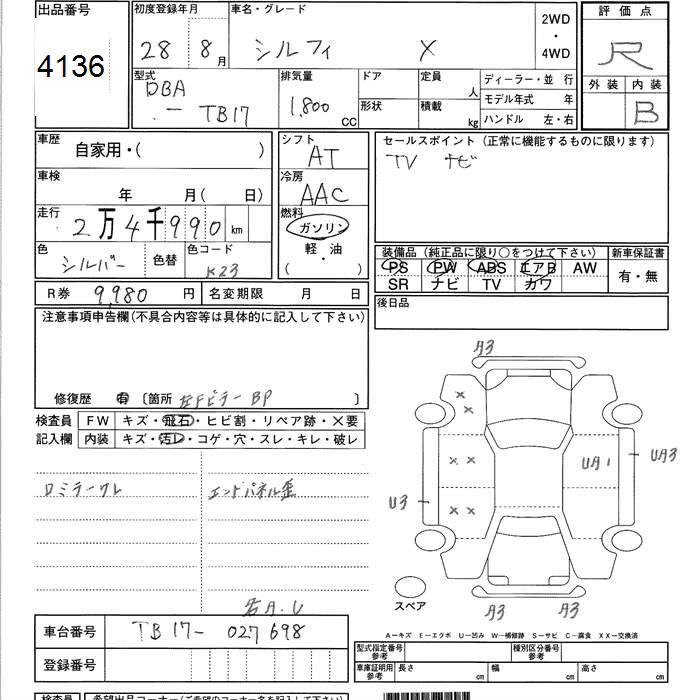 出品番号 初度登録年月 車名・グレード 2WD 評価点
4136 28 8月 シルフィ X ・ R
4WD 外装 内装
型式 排気量 ドア 定員 人 ディーラー・並 行 B
DBA
ー TB17 1,800 CC 形状 積載 kg モデル年式 年
ハンドル 左・右
車歴 自家用・( ) シフト AT セールスポイント (正常に機能するものに限ります)
TV ナビ
車検 年 月( 日) 冷房 AAC
走行 2万4千990km 燃料 ガソリン
軽・油
( )
色 シルバー 色替 色コード K23
装備品 (純正品に限り○をつけて下さい) 新車保証書
PS PW ABS エアB AW 有・無
SR ナビ TV カワ
R券 9,980円 名変期限 月 日 後日品
注意事項申告欄(不具合内容等は具体的に記入して下さい)
修復歴 有 〔箇所 左Fピラー BP 〕
検査員 FW キズ・飛石・ヒビ割・リペア跡・×要
記入欄 内装 キズ・汚レ・コゲ・穴・スレ・キレ・破レ
エンドパネル歪
右A.U
A3
× ×
× × UA1 UA3
U3 × ×
スペア A3 A3
車台番号 TB17-027698
登録番号
A－キズ E－エクボ U－凹み W－補修跡 S－サビ C－腐食 XX－交換済
型式指定番号 参考 種別区分番号 参考
車庫証明用 参考 長さ cm 幅 cm 高さ cm
検査員 希望出品コーナー(ご希望のコーナー名を記入下さい)